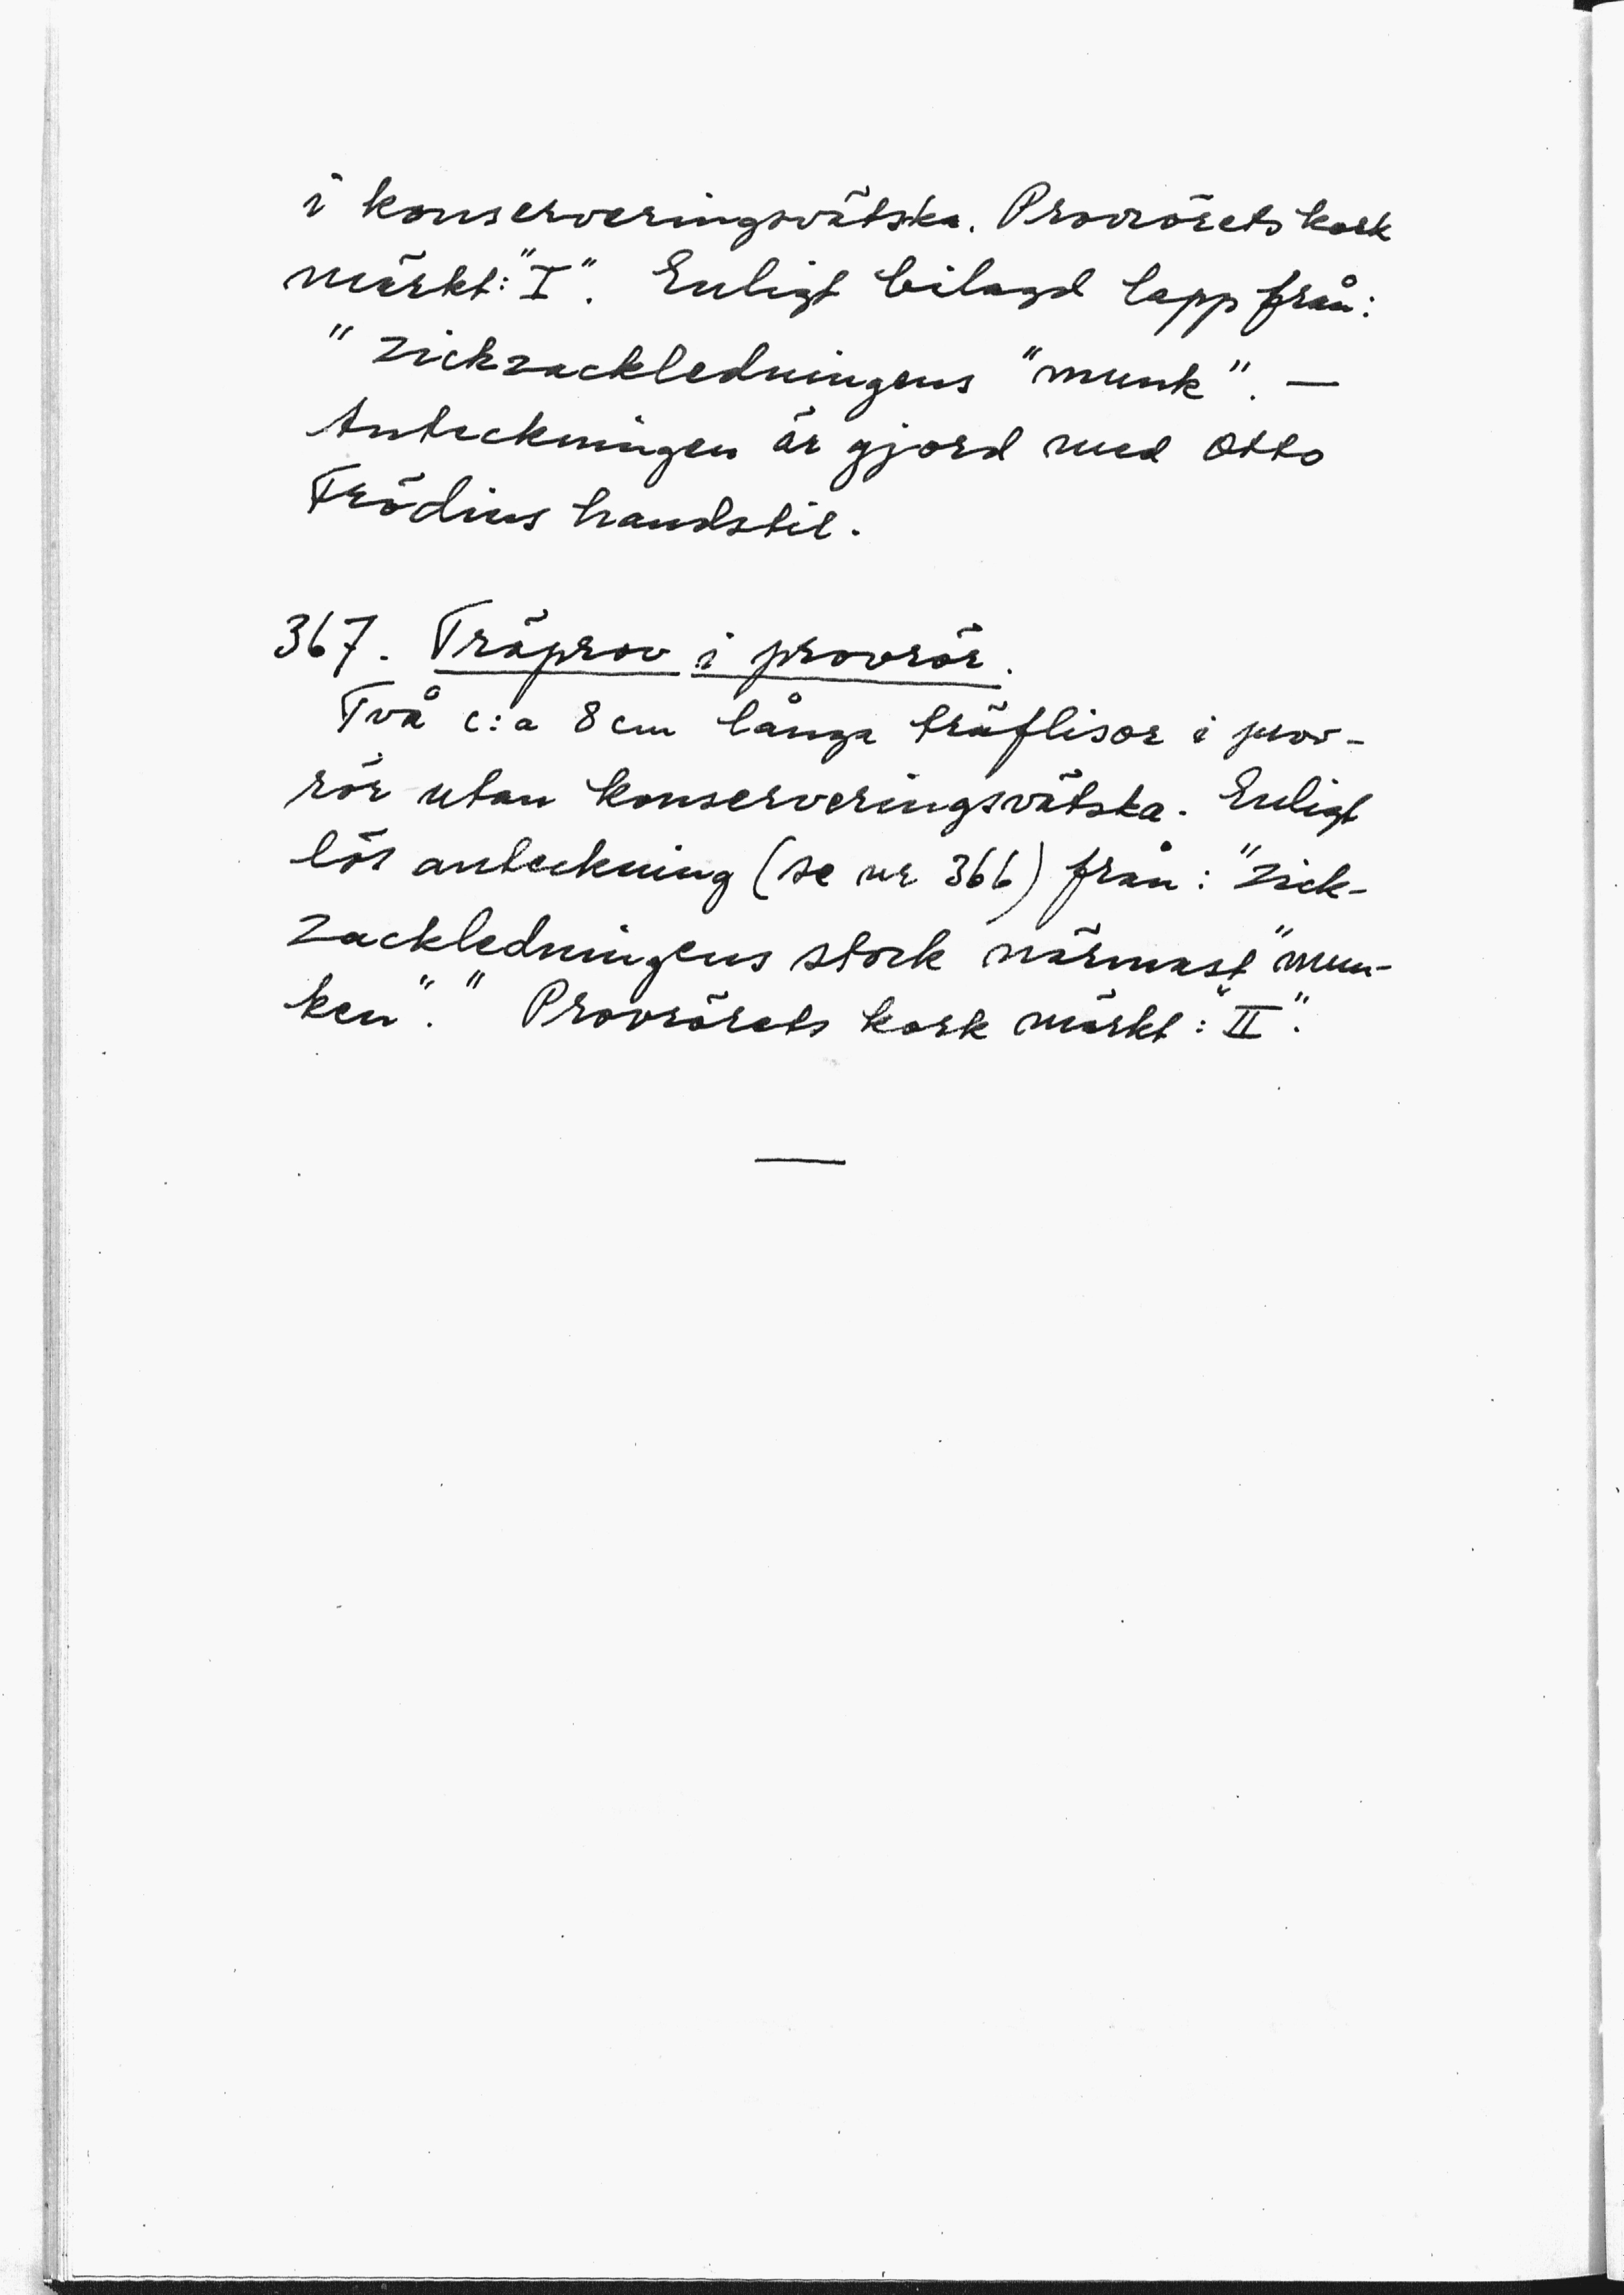 i konserveringsvätska. Provrörets kork
märkt: "I". Enligt bilagd lapp från:
"Zickzackledningens "munk". —
Anteckningen är gjord med Otto
Frödins handstil.
367. Träprov i provrör.
Två c:a 8 cm långa träflisor i prov-
rör utan konserveringsvätska. Enligt
lös anteckning (se nr 366) från: "Zick-
zackledningens stock närmast "mun-
ken"." Provrörets kork märkt: "II".